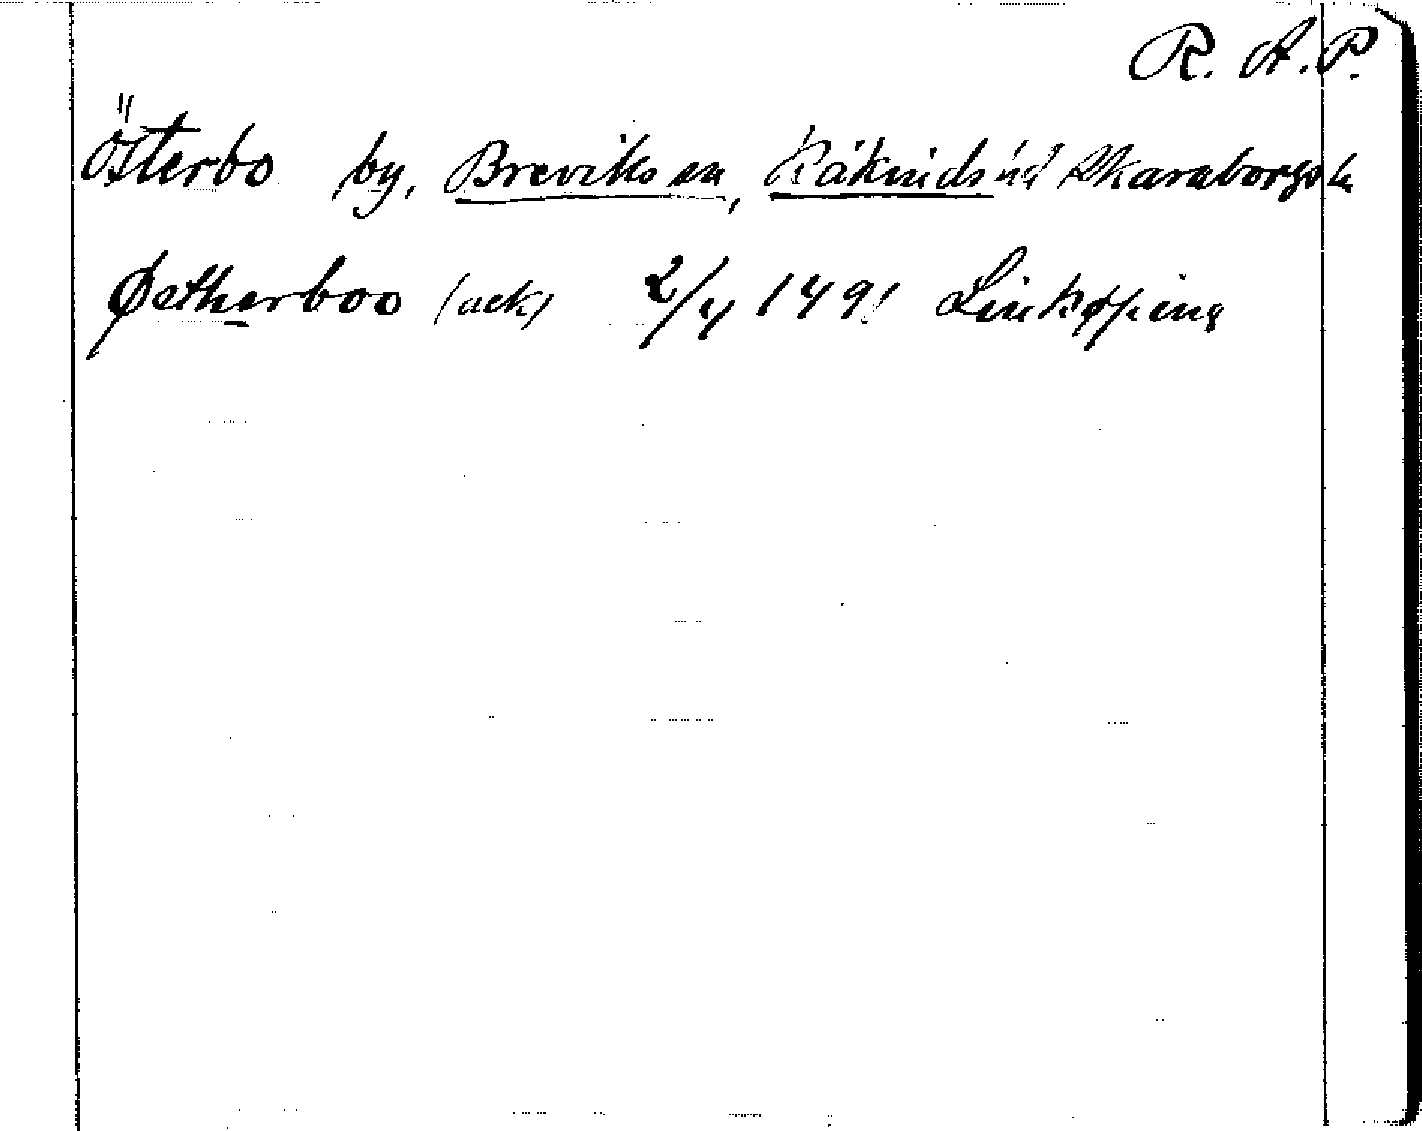 R. A. P.
Österbo by, Breviks sn, Kåkinds hd Skaraborgs ln
Østherboo (ack) 2/4 1491 Linkøping